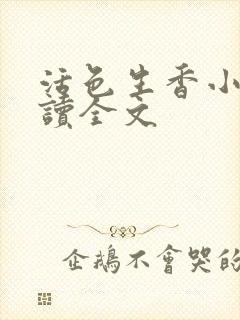 活色生香小
讀全文
企鵝不會哭的